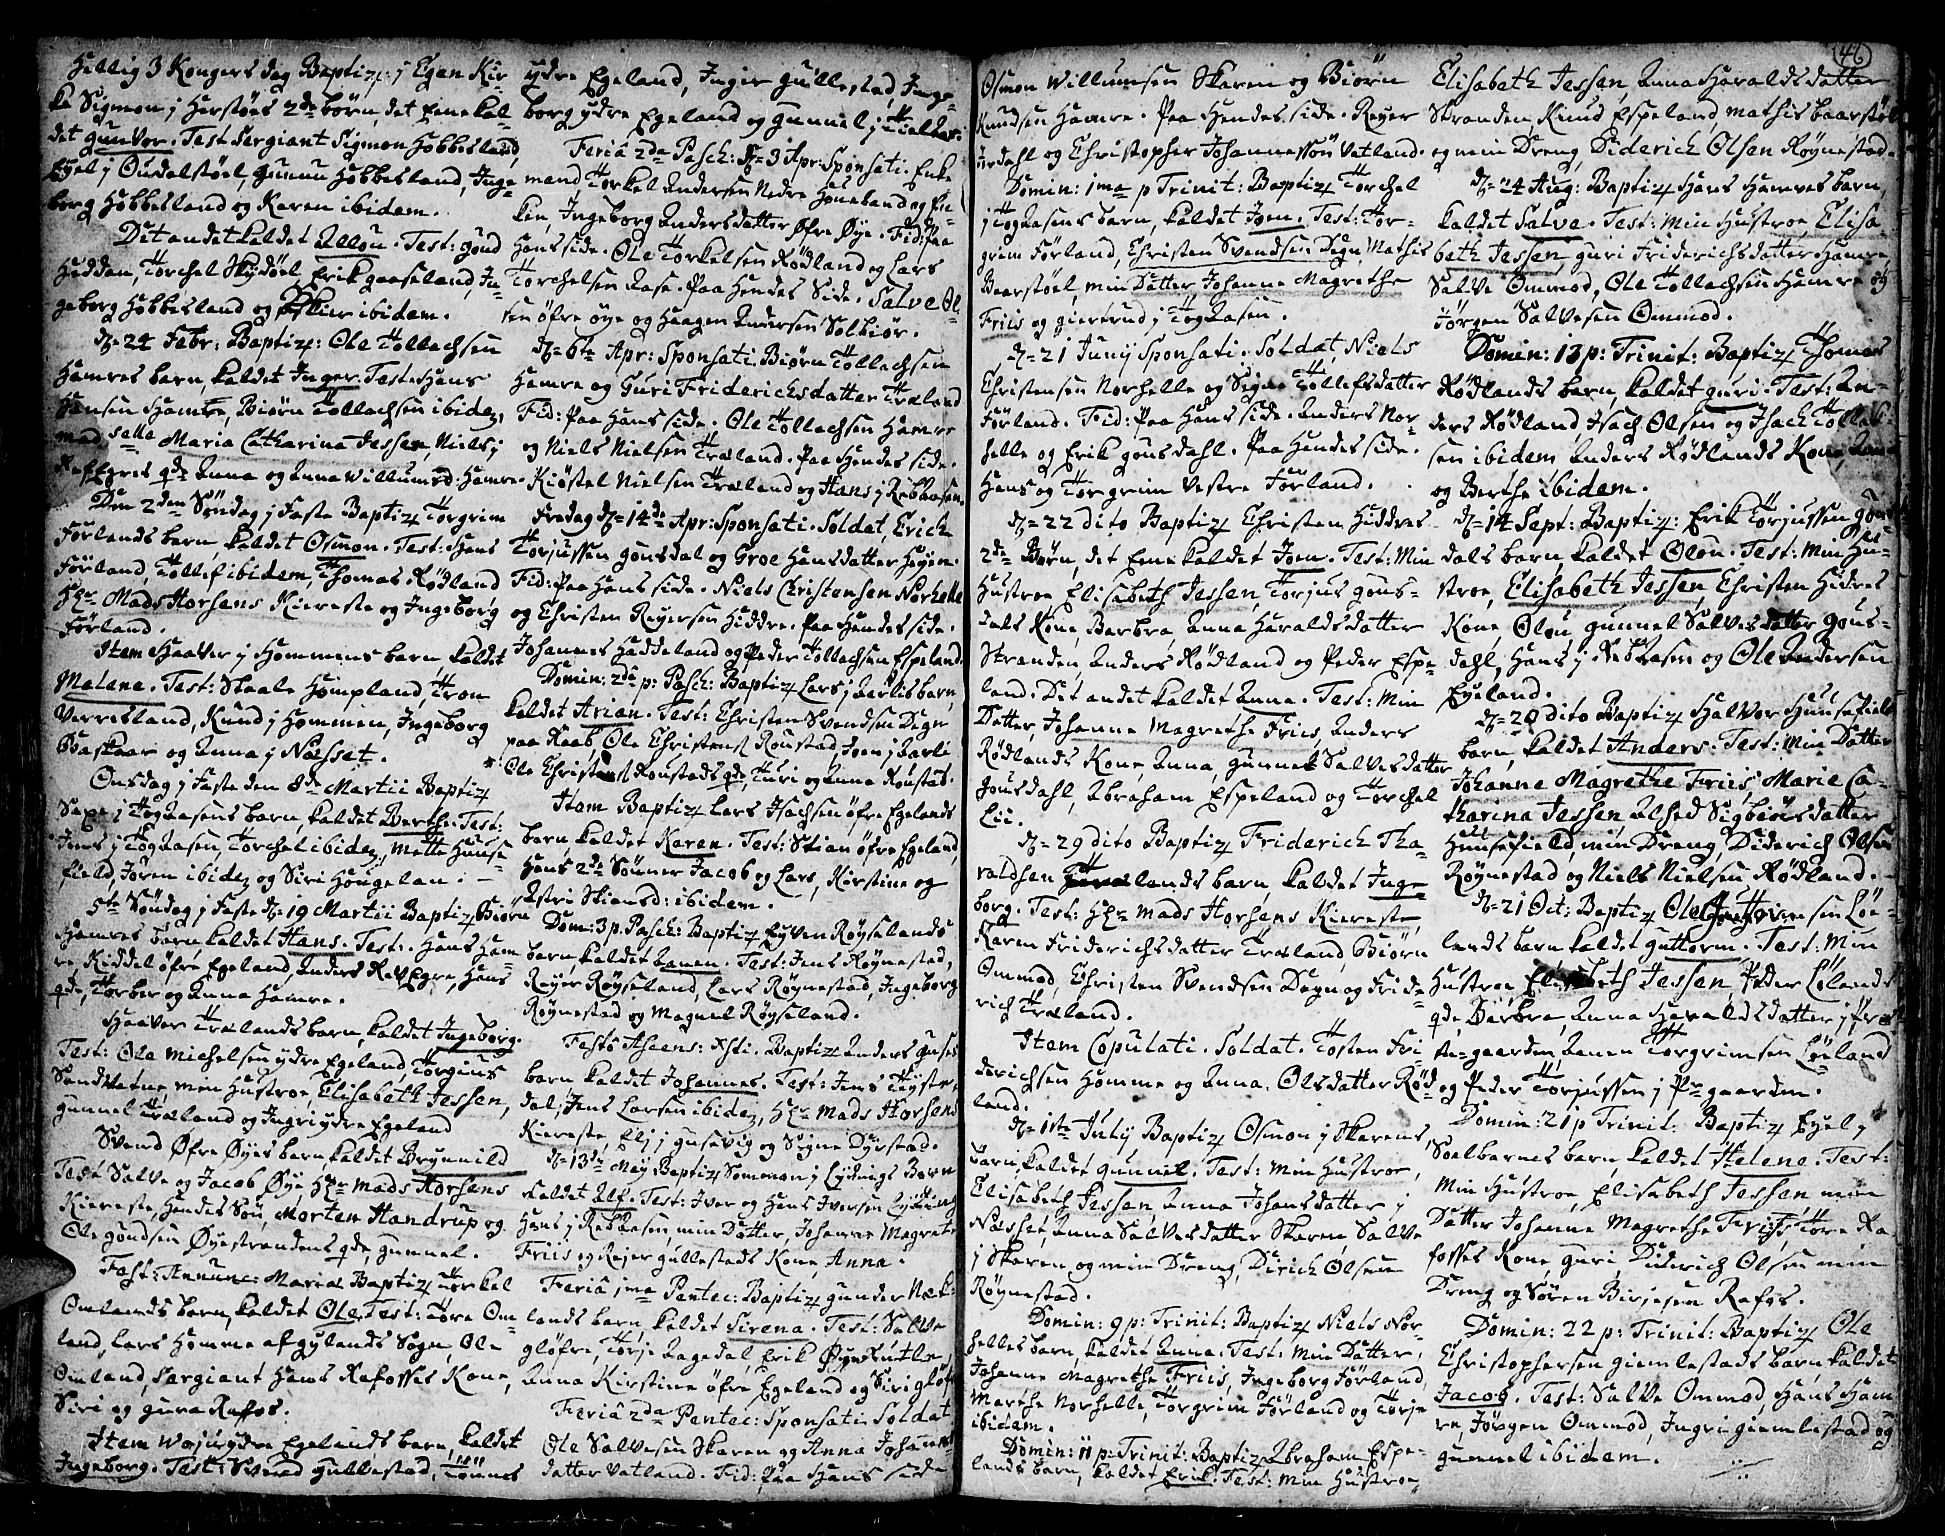 Hellig 3 Kongers dag Baptiz: i Egen Kir-
ke Sigmon i Herstøes 2de børn, det Eene kal-
det Gunvor. Test. Sergiant Sigmon Hobbesland
Eyel i Oudalstøel, Gunnu Hobbesland, Inge-
borg Hobbesland og Karen ibidem.
Det andet kaldet Allou. Test: Gund
Hidden, Torchel Skydøel, Erik gaaseland, In-
geborg Hobbesland og ibidem.
d: 24 Febr: Baptiz: Ole Tollachsen
Hamres barn, kaldet Inger. Test: Hans
Hansen Hamre, Biørn Tollachsen ibidem,
mad selle Maria Catharina Jessen, Niels i
Refsgrei qde Anna og Anna Willumsd: Hamre.
Den 2den Søndag i Faste Baptiz Torgrim
Førlands barn, kaldet Osmon. Test: Hans
Førland, Tollef ibidem, Thomas Rødland
Hr Mads Horsens Kiereste og Ingeborg
Førland.
Item Haaver i Hommens barn kaldet
Malene. Test: Staale Hompland, Tron
Verresland, Knud i Hommen, Ingeborg
Baskaar og Anna i Næsset.
Onsdag i Faste den 8de Martii Baptiz
Saxe i TogAasens barn, kaldet Berthe. Test:
Jens i TogAasen, Torchel ibidem, Mette Huuse-
field, Joren ibidem og Siri Hougelan:
5te Søndag i Faste d: 19 Martii Baptiz Biørn
Hamres barn kaldet Hans. Test: Hans Ham-
re, Kiddel øfre Egeland, Anders RefsEgre, Hans
qde, Torber og Anna Hamre.
Haaver Trælands barn, kaldet Ingeborg.
Test: Ole Michelsen ydre Egeland, Torgiuus
Sandvatne, min Hustroe, Elisabeth Jessen,
Gunnel Træland og Ingri ydre Egeland
Svend Øfre Øyes barn, kaldet Brynnild
Test Salve og Jacob Øye, Hr Mads Horsens
Kiereste, Hendes Søn, Morten Handrup og
Ole Gundsen Øyestrandens qde, Gunnel.
Fest: Annunc: Mariæ Baptiz Torkel
Omlands barn, kaldet Ole. Test: Tore Om-
land, Lars Homme af Gylands Sogn, Ole
Omland, Sargiant Hans Rafosses Kone,
Siri og Gura Rafos.
Item ydre Egelands barn, kaldet
Ingeborg. Test: Svend Gullestad, Tønnes
ydre Egeland, Inger Gullestad, Inge-
borg ydre Egeland og Gunnel i
Feriâ 2da Pasch: d: 3 Apr: Sponsati. Enke
mand, Torkel Andersen Nedre Høneland og En-
ken, Ingeborg Andersdatter Øfre Øye. Fid: Paa
Hans side. Ole Torkelsen Rødland og Lars
Torchelsen Aase. Paa Hendes Side. Salve Ol-
sen øfre øye og Haagen Andersen Solbiør.
d: 6te Apr: Sponsati Biørn Tollachsen
Hamre og Guri Friderichsdatter Træland
Fid: Paa Hans side. Ole Tollachsen Hamre
og Niels Nielsen Træland. Paa Hendes side.
Kiøstel Nielsen Træland og Hans i RebAasen.
Fredag d: 14de Apr: Sponsati. Soldat, Erich
Torjussen Gonsdal og Groe Hansdatter Høyem.
Fid: Paa Hans side. Niels Christensen Norhelle
og Christen Reyersen Hiddre. Paa Hendes side.
Johannes Haddeland og Peder Tollachsen Espeland.
Domin: 2da p: Pasch: Baptiz Lars i barn,
kaldet Arian. Test: Christen Svendsen Degn
paa Raab, Ole Christens Roustad, Joen i
Ole Christens Roustads qde, Turi og Anna Roustad.
Item Baptiz Lars Isachsen øfre Egelands
barn, kaldet Karen. Test: Stian øfre Egeland,
Hans 2de Sønner Jacob og Lars, Kirstine og
Astri Stiansd: ibidem.
Dom: 3 p. Pasch: Baptiz Eyven Røyselands
barn kaldet Aanen. Test: Jens Røynestad,
Reyer Røyseland, Lars Røynestad, Ingeborg
Røynestad og Magnel Røyseland.
Festo Ascens: Xsti. Baptiz Anders
barn kaldet Johannes. Test: Jens
dal, Jens Larsen ibidem, Hr Mads Horsens
Kiereste, Elj i Gusevig og Signe Dyrstad.
d: 13de Maij Baptiz Sommon i Lydings Barn
kaldet Alf. Test: Iver og Hans Iversen Lyding
Hans i RebAasen, min Datter, Johanne Magrete
Friis og Rejer Gullestads Kone, Anna.
Feriâ 1ma Pentec: Baptiz Gunder
lands barn kaldet Sirena. Test: Salve
Gløfre, Torje Aagedal, Erik
Anna Kirstine øfre Egeland og Siri
Feriâ 2da Pentec: Sponsati Soldat
Ole Salvesen Skaren og Anna Johanns
datter Vatland. Fid: Paa Hans side
Osmon Willumsen Skaren og Biørn
Knudsen Hamre. Paa Hendes side. Reyer
Urdahl og Christopher Johannessøn Vatland.
Domin: 1ma p Trinit: Baptiz Torchel
i TogAasens barn, kaldet Joen. Test: Tor-
grim Førland, Christen Svendsen Degn, Mathis
Baarstøel, min Datter Johanne Magrethe
Friis og Giertrud i TogAasen.
d: 21 Junij Sponsati. Soldat Niels
Christensen Norhelle og Signe Tollefsdatter
Førland. Fid: Paa Hans side. Anders Nor-
helle og Erik Gonsdahl. Paa Hendes side.
Hans og Torgrim Vestre Førland.
d: 22 dito Baptiz Christen Hiddres
2de Børn, det Eene kaldet Joen. Test: Min
Hustroe Elisabeth Jessen, Torjus Gons-
dals Kone, Barbra, Anna Haraldsdatter
Stranden Anders Rødland og Peder Espe-
land. Det andet kaldet Anna. Test: Min
Datter, Johanne Magrethe Friis, Anders
Rødlands Kone, Anna, Gunnel Salvesdatter
Gonsdahl, Abraham Espeland og Torchel
Lii.
d: 29 dito Baptiz Friderich Tha-
raldsen lands barn, kaldet Inge
borg. Test: Hr Mads Horsens Kiereste,
Karen Friderichsdatter Træland, Biørn
Ommod, Christen Svendsen Degn og Fride-
rich Træland.
Item Copulati. Soldat. Tosten Fri-
derichsen Homme og Anna Olsdatter Rød-
land.
d: 1ste Julij Baptiz Osmon i Skarens
barn, kaldet Gunnel. Test: Min Hustroe,
Elisabeth Jessen Anna Johansdatter i
Næsset, Anna Salvesdatter Skaren, Salve
i Skaren og min Dreng, Dirich Olsen
Røynestad.
Domin: 9 p: Trinit: Baptiz Niels Nor-
helles barn, kaldet Anna. Test: Min Datter,
Johanne Magrethe Friis, Ingeborg Førland,
Marthe Norhelle, Torgrim Førland og Torje
ibidem.
Domin: 11 p: Trinit: Baptiz Abraham Espe-
lands barn, kaldet Erik. Test: Min Hustroe,
46
Elisabeth Jessen, Anna Haraldsdatter
Stranden Knud Espeland, Mathis Baarstøel
og min Dreng, Diderich Olsen Røynestad.
d: 24 Aug: Baptiz Hans Hamres barn,
kaldet Salve. Test: Min Hustroe, Elisa-
beth Jessen, Guri Friderichsdatter Hamre,
Salve Ommod, Ole Tollachsen Hamre og
Jørgen Salvesen Ommod.
Domin: 13 p: Trinit: Baptiz Thomas
Rødlands barn, kaldet Guri. Test: An-
ders Rødland, Isach Olsen og Isach Tollef-
sen ibidem Anders Rødlands Kone, Anna
og Berthe ibidem.
d: 14 Sept: Baptiz: Erik Torjussen Gons-
dals barn, kaldet Olou. Test: Min Hu-
stroe, Elisabeth Jessen, Christen Hidres
Kone, Olou, Gunnel Salvesdatter Gons-
dahl, Hans i RebAasen og Ole Andersen
Eyeland.
d: 29 dito Baptiz Halvor Huusefields
barn, kaldet Anders. Test: Min Datter
Johanne Magrethe Friis, Marie Ca-
tharina Jessen, Alhed Sigbiørsdatter
Huusefield, min Dreng, Diderich Olsen
Røynestad og Niels Nielsen Rødland.
d: 21 Oct: Baptiz Ole Guttormsen Løe-
lands barn kaldet Guttorm. Test: Min
Hustroe Elisabeth Jessen, Peder Lølands
qde, Barbra, Anna Haraldsdatter i Præ-
ste-gaarden, Aanen Torgrimsen Løeland
og Peder Torjussen i Pr-gaarden.
Domin: 21 p Trinit: Baptiz Eyel i
Soelbarnes barn, kaldet Helene. Test:
Min Hustroe, Elisabeth Jessen min
Datter Johanne Magrethe Friis, Tore Ra-
fosses Kone, Guri, Diderich Olsen min
Dreng og Søren Birjesen Rafos.
Domin: 22 p: Trinit: Baptiz Ole
Christophersen Giemlestads barn kaldet
Jacob. Test: Salve Ommod, Hans Ham-
re, Jørgen Ommod, Ingri Giemlestad og
Gunnel ibidem.